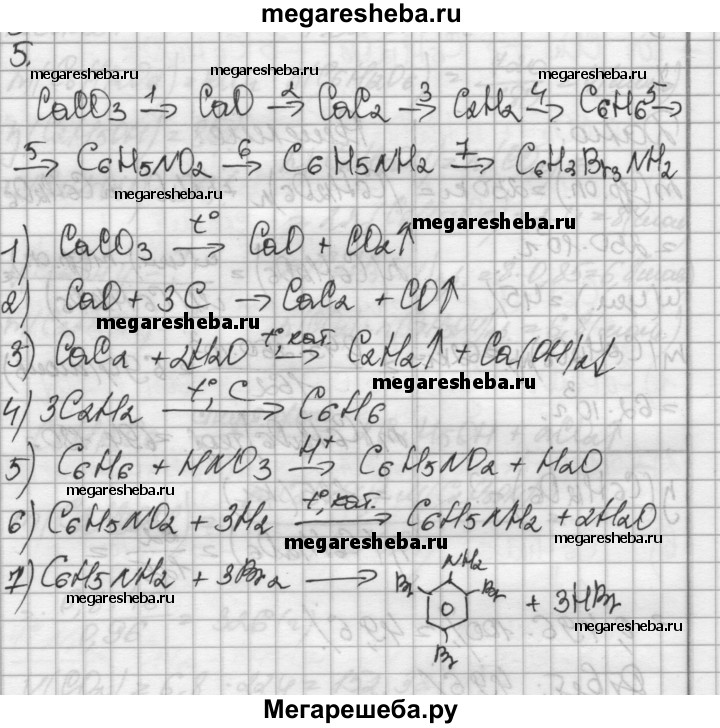 megaresheba.ru
5.
megaresheba.ru megaresheba.ru megaresheba.ru
CaCO3 1→ CaO 2→ CaC2 3→ C2H2 4→ C6H6 5→
5→ C6H5NO2 6→ C6H5NH2 7→ C6H2Br3NH2
megaresheba.ru
1) CaCO3 t°→ CaO + CO2↑
megaresheba.ru
2) CaO + 3C → CaC2 + CO↑
megaresheba.ru
3) CaC2 + 2H2O t°, кат.→ C2H2↑ + Ca(OH)2↓
megaresheba.ru
4) 3C2H2 t°, C→ C6H6
5) C6H6 + HNO3 H+→ C6H5NO2 + H2O
megaresheba.ru
6) C6H5NO2 + 3H2 t°, кат.→ C6H5NH2 + 2H2O
megaresheba.ru megaresheba.ru
7) C6H5NH2 + 3Br2 → NH2 Br Br Br + 3HBr
megaresheba.ru megaresheba.ru
Мегарешеба.ру